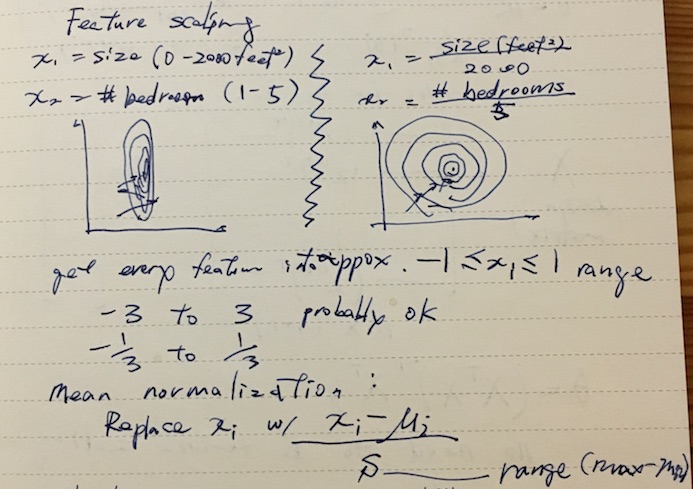 Feature scaling
x₁ = size (0-2000 feet²)
x₂ = # bedroom (1-5)
x₁ = size (feet²) / 2000
x₂ = # bedrooms / 5
get every feature into appox. -1 ≤ x₁ ≤ 1 range
-3 to 3 probably ok
-1/3 to 1/3
Mean normalization:
Replace xᵢ w/ xᵢ - μᵢ / S range (max-min)